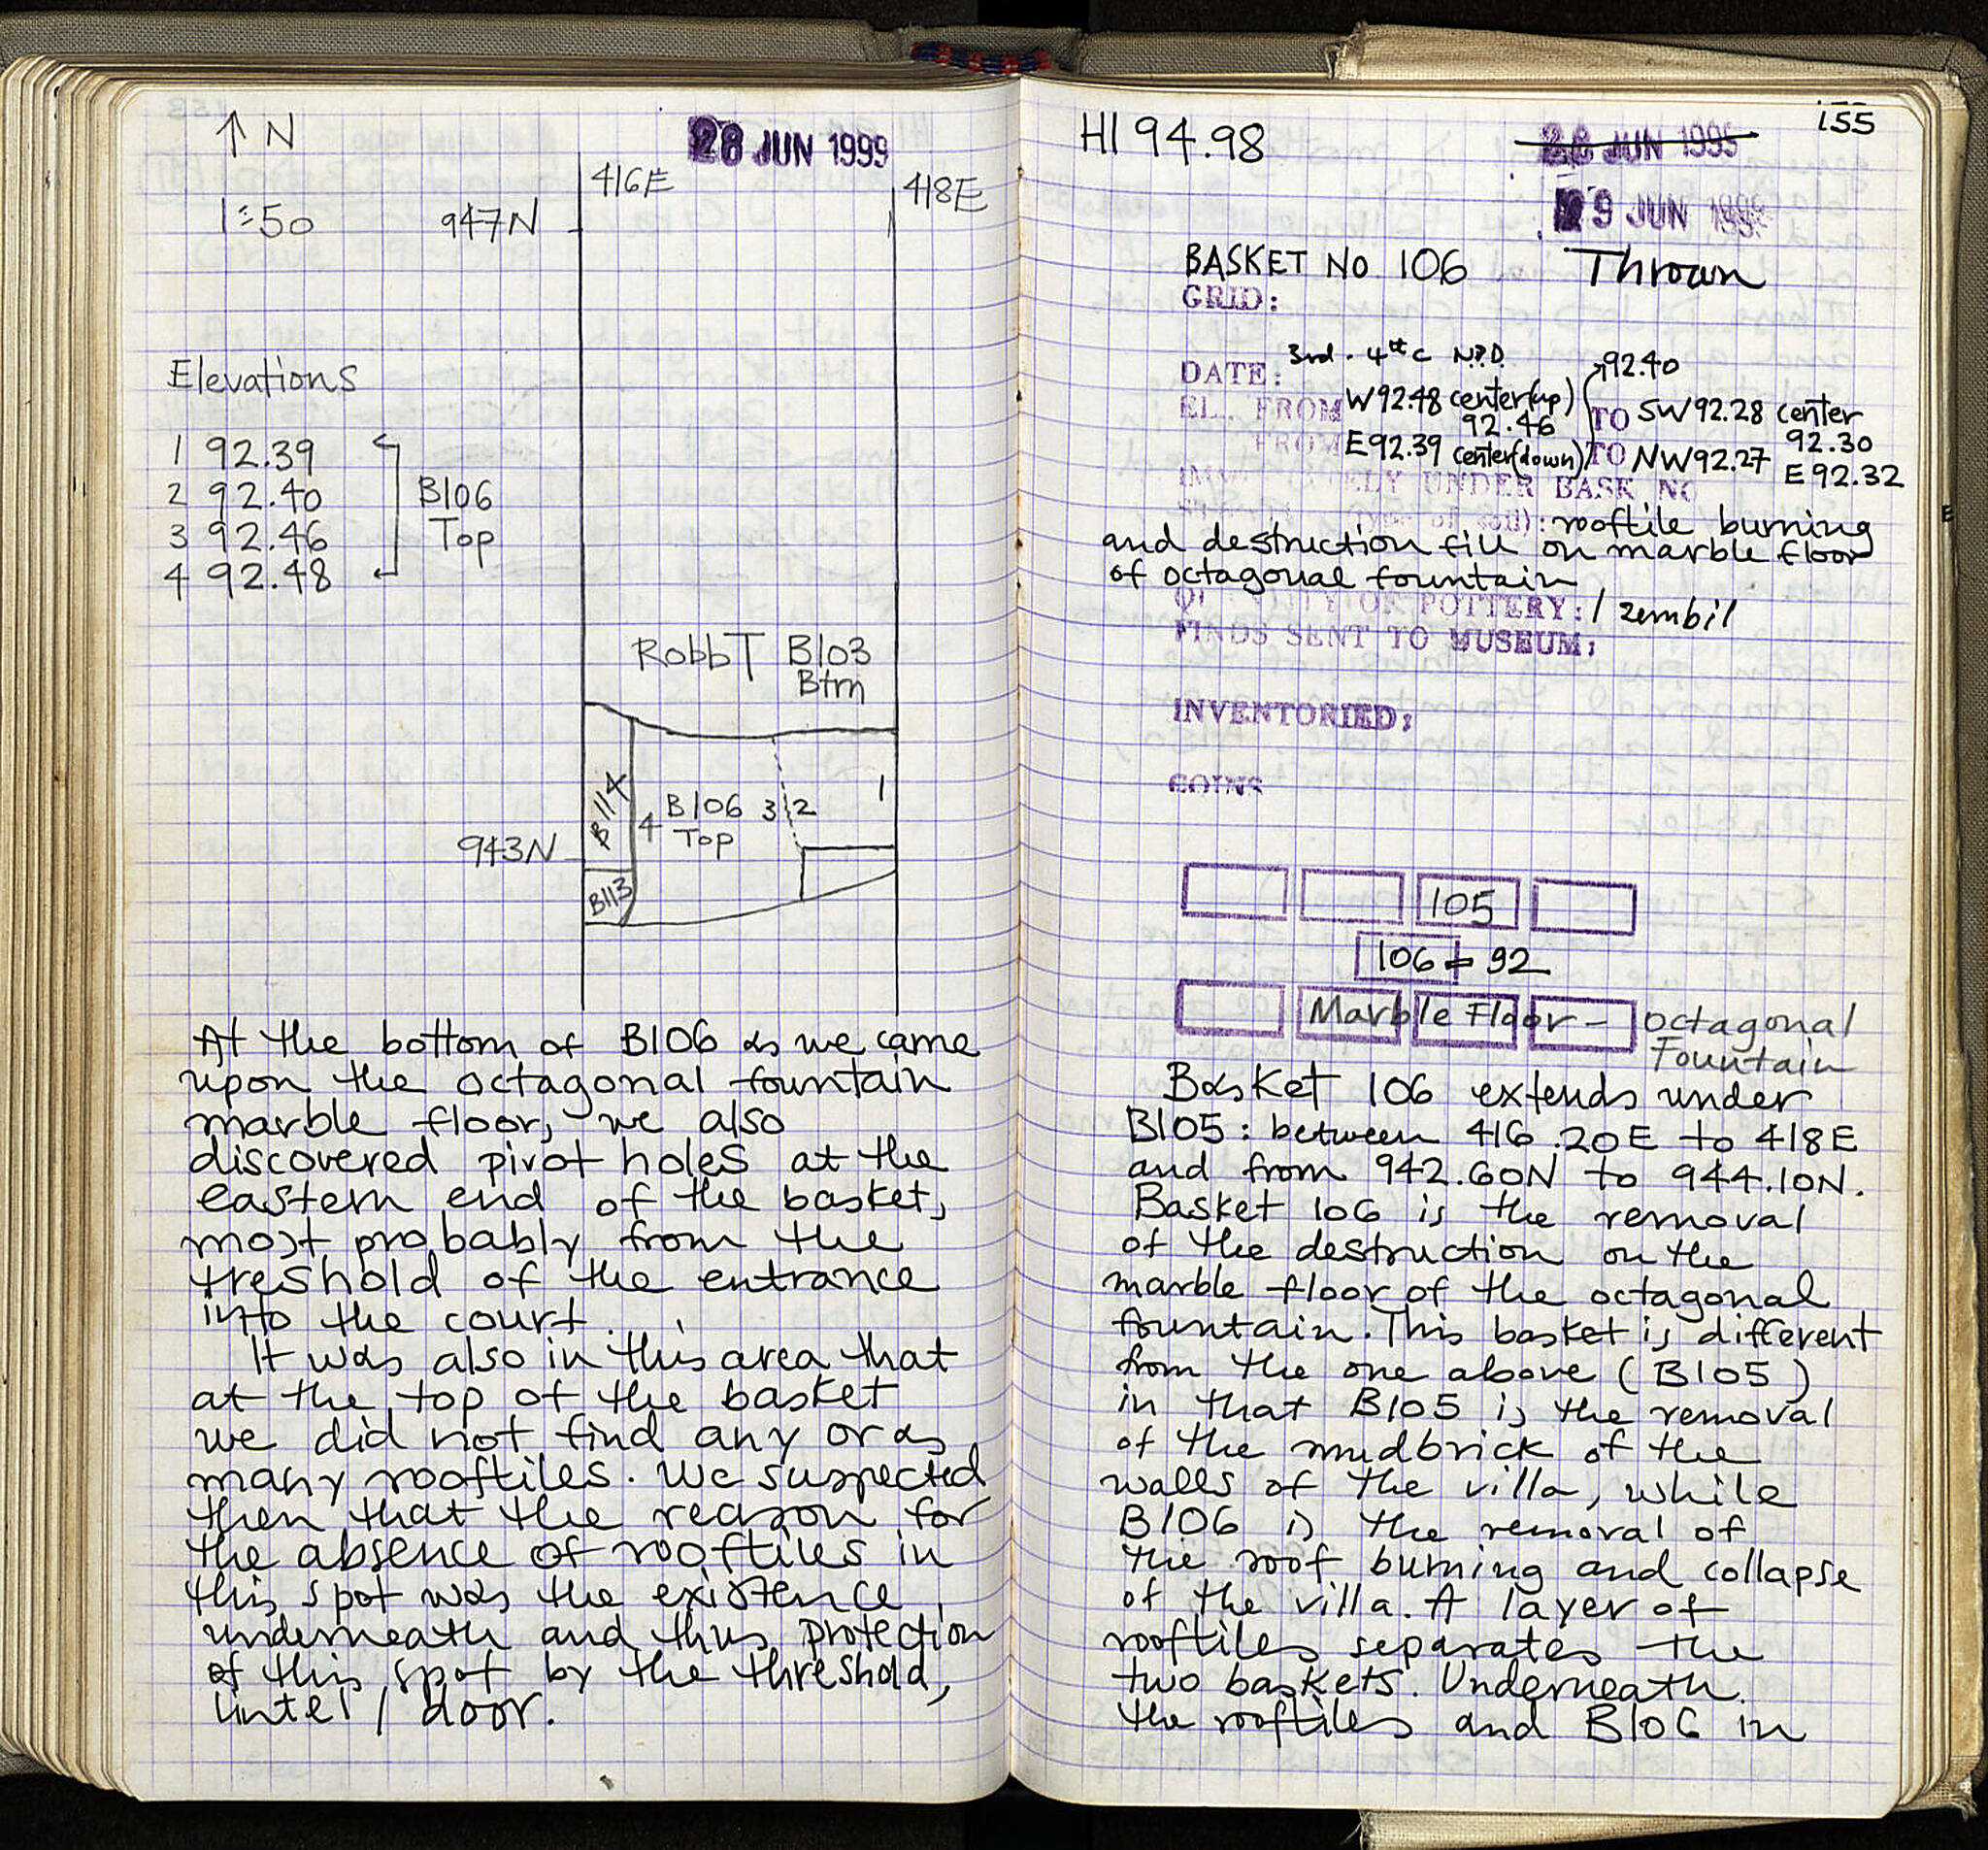 ↑ N
28 JUN 1999
416E
418E
1:50
947N
Elevations
1 92.39
2 92.40
3 92.46
4 92.48
B106
Top
RobbT B103
Btm
B114
4
B106
Top
3
2
1
943N
B113
At the bottom of B106 as we came
upon the octagonal fountain
marble floor, we also
discovered pivot holes at the
eastern end of the basket,
most probably from the
treshold of the entrance
into the court.
It was also in this area that
at the top of the basket
we did not find any or as
many rooftiles. We suspected
then that the reason for
the absence of rooftiles in
this spot was the existence
underneath and thus protection
of this spot by the threshold,
lintel / door.
155
HI 94.98
28 JUN 1995
29 JUN
BASKET NO 106 Thrown
GRID:
DATE: 3rd - 4th c
92.40
EL. FROM W92.48 center(up) 92.46 TO SW92.28 center 92.30
FROM E92.39 center(down) TO NW92.27 E92.32
UNDER BASK NO
rooftile burning
and destruction fill on marble floor
of octagonal fountain
OF POTTERY: 1 zembil
FINDS SENT TO MUSEUM:
INVENTORIED:
COINS
105
106 = 92
Marble Floor - octagonal
Fountain
Basket 106 extends under
B105: between 416.20E to 418E
and from 942.60N to 944.10N.
Basket 106 is the removal
of the destruction on the
marble floor of the octagonal
fountain. This basket is different
from the one above (B105)
in that B105 is the removal
of the mudbrick of the
walls of the villa, while
B106 is the removal of
the roof burning and collapse
of the villa. A layer of
rooftiles separates the
two baskets. Underneath
the rooftiles and B106 in